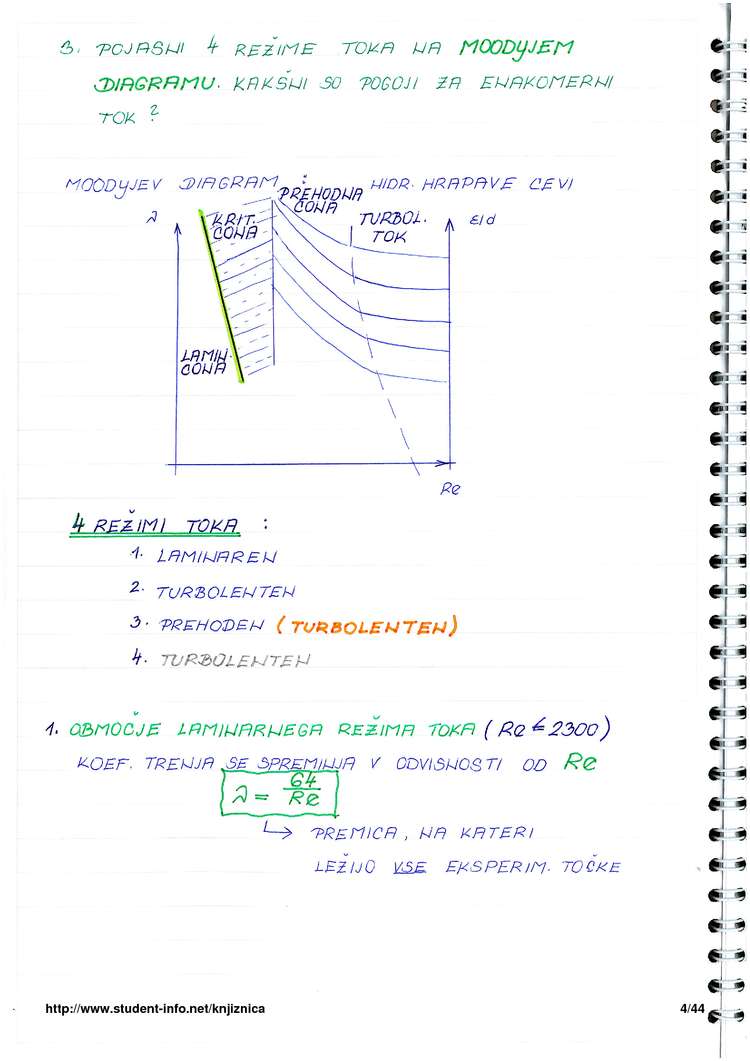 3. POJASNI 4 REŽIME TOKA NA MOODYJEM
DIAGRAMU. KAKŠNI SO POGOJI ZA ENAKOMERNI
TOK?
MOODYJEV DIAGRAM : HIDR. HRAPAVE CEVI
PREHODNA
CONA
λ
KRIT.
CONA
TURBOL.
TOK
ε/d
LAMIN.
CONA
Re
4 REŽIMI TOKA :
1. LAMINAREN
2. TURBOLENTEN
3. PREHODEN (TURBOLENTEN)
4. TURBOLENTEN
1. OBMOČJE LAMINARNEGA REŽIMA TOKA (Re ≤ 2300)
KOEF. TRENJA SE SPREMINJA V ODVISNOSTI OD Re
λ = 64/Re
↳ PREMICA, NA KATERI
LEŽIJO VSE EKSPERIM. TOČKE
http://www.student-info.net/knjiznica
4/44